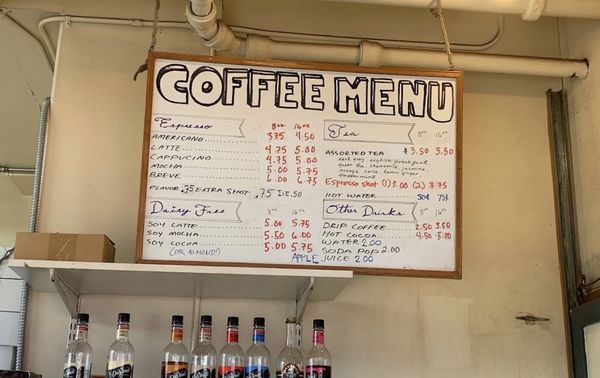 COFFEE MENU
Espresso 8oz 16oz
AMERICANO 3.75 4.50
LATTE 4.75 5.00
CAPPUCINO 4.75 5.00
MOCHA 5.00 5.75
BREVE 6.00 6.75
FLAVOR .75 EXTRA SHOT .75 ICE .50
Dairy Free 16oz
SOY LATTE 5.00 5.75
SOY MOCHA 5.50 6.00
SOY COCOA 5.00 5.75
(OR ALMOND!)
Tea 8oz 16oz
ASSORTED TEA $3.50 3.50
earl grey, english breakfast,
green tea, chamomile, jasmine,
orange spice, lemon ginger,
peppermint
Espresso shot (1) 3.00 (2) 3.75
HOT WATER 50¢ 75¢
Other Drinks 8oz 16oz
DRIP COFFEE 2.50 3.50
HOT COCOA 4.50 5.00
WATER 2.00
SODA POP 2.00
APPLE JUICE 2.00